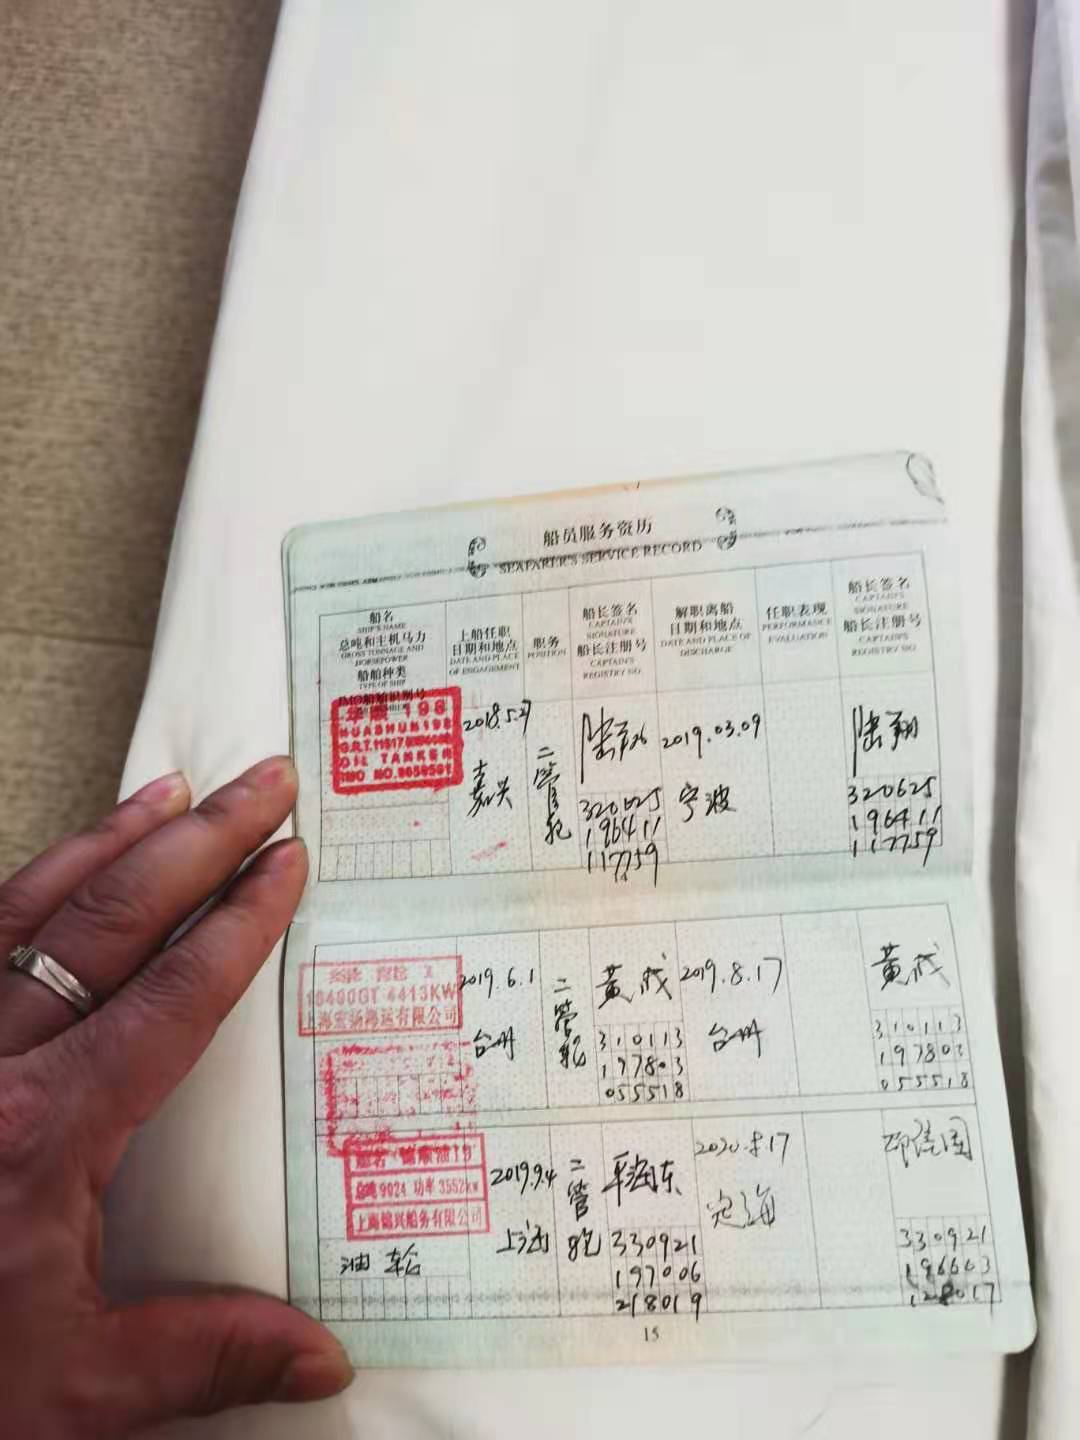 船员服务资历
SEAFARER'S SERVICE RECORD
船名
SHIP'S NAME
总吨和主机马力
GROSS TONNAGE AND
HORSEPOWER
船舶种类
TYPE OF SHIP
IMO船舶识别号
上船任职
日期和地点
DATE AND PLACE
OF ENGAGEMENT
职务
POSITION
船长签名
CAPTAIN'S
SIGNATURE
船长注册号
CAPTAIN'S
REGISTRY NO
解职离船
日期和地点
DATE AND PLACE OF
DISCHARGE
任职表现
PERFORMANCE
EVALUATION
船长签名
CAPTAIN'S
SIGNATURE
船长注册号
CAPTAIN'S
REGISTRY NO
198
HUASHUN198
OIL TANKER
IMO NO.
2018.5.27
嘉兴
二管轮
320625
196411
117759
2019.03.09
宁波
320625
196411
117759
14
4413KW
上海宏扬海运有限公司
2019.6.1
台州
二管轮
黄成
310113
197803
055518
2019.8.17
台州
黄成
310113
197803
055518
船名 锦顺油19
总吨9024 功率3552kw
上海锦兴船务有限公司
油轮
2019.9.4
上海
二管轮
330921
197006
218019
定海
330921
15